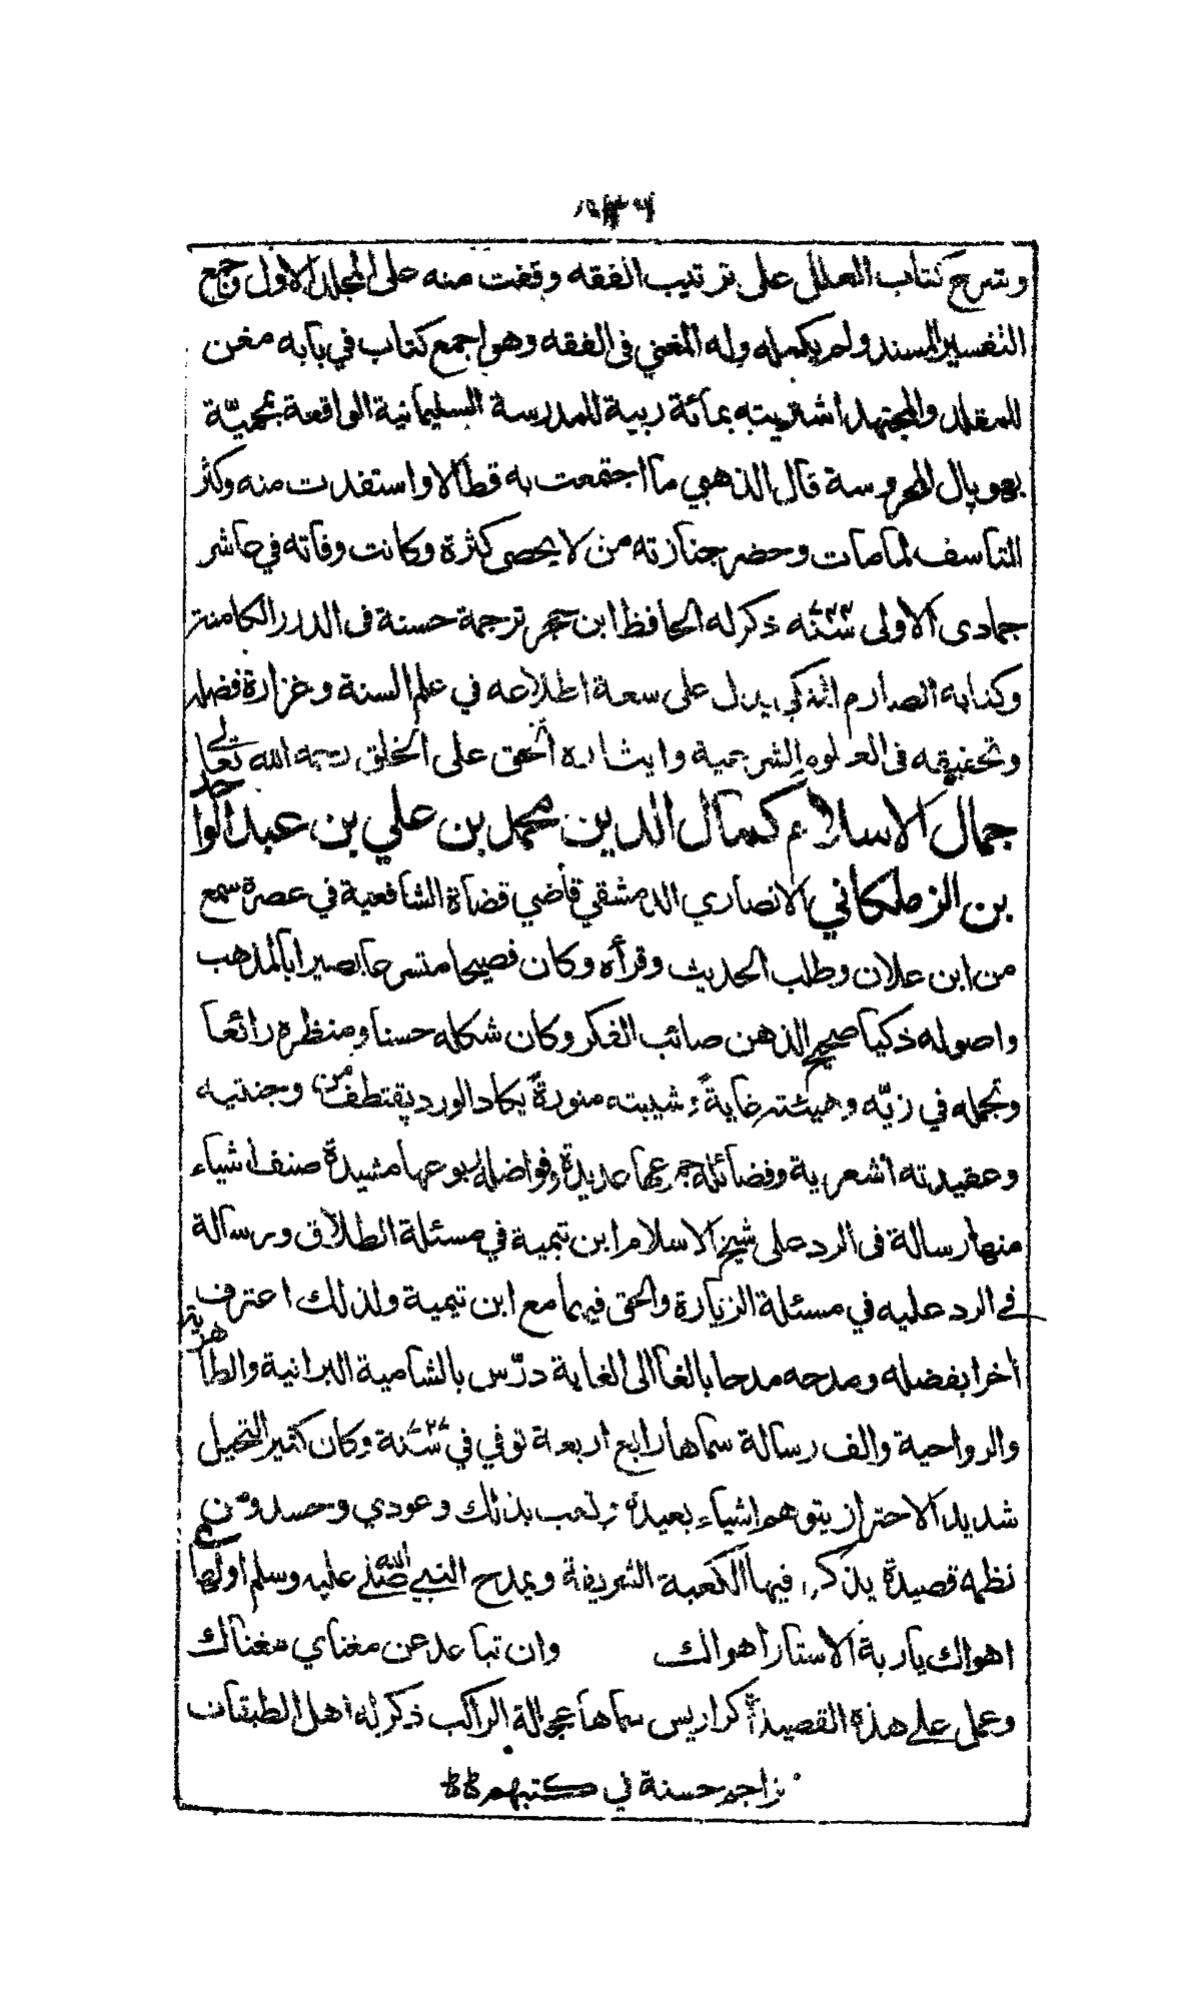 وشرح كتاب العلل على ترتيب الفقه وقفت منه على المجلد الاول وجمع
التفسير المسند ولم يكمله وله المغني فى الفقه وهو اجمع كتاب في بابه مغن
للمقلد والمجتهد اشتريته بمائة ربية للمدرسة السليمانية الواقعة بمحميّة
بهوپال المحروسة قال الذهبي ما اجتمعت به قط الا واستفدت منه وكثر
التاسف لما مات وحضر جنازته من لا يحصى كثرة وكانت وفاته في عاشر
جمادى الاولى سنة ذكر له الحافظ ابن حجر ترجمة حسنة فى الدرر الكامنة
وكتابه الصارم المنكي يدل على سعة اطلاعه في علم السنة وغزارة فضله
وتحقيقه فى العلوم الشرعية وايثاره الحق على الخلق رحمه الله تعالى
جمال الاسلام كمال الدين محمد بن علي بن عبد الواحد
بن الزملكاني الانصاري الدمشقي قاضي قضاة الشافعية في عصره سمع
من ابن علان وطلب الحديث وقرأه وكان فصيحا متسرعا بصيرا بالمذهب
واصوله ذكيا صحيح الذهن صائب الفكر وكان شكله حسنا ومنظره رائعا
وتجمله في زيّه وهيئته غاية وشيبته منورة يكاد الورد يقتطف من وجنتيه
وعقيدته اشعرية وفضائله جمة عديدة وفواضله ربوعها مشيدة صنف اشياء
منها رسالة فى الرد على شيخ الاسلام ابن تيمية في مسئلة الطلاق ورسالة
في الرد عليه في مسئلة الزيارة والحق فيهما مع ابن تيمية ولذلك اعترف
أخرا بفضله ومدحه مدحا بالغا الى الغاية درّس بالشامية البرانية والظاهرية
والرواحية والف رسالة سماها رابع اربعة توفي في سنة ٧٢٧ وكان كثير التخيل
شديد الاحتراز يتوهم اشياء بعيدة وتعب بذلك وعودي وحسد ومن
نظمه قصيدة يذكر فيها الكعبة الشريفة ويمدح النبي صلى الله عليه وسلم اولها
اهواك ياربة الاستار اهواك وان تباعد عن مغناي مغناك
وعمل على هذه القصيدة كراريس سماها عجالة الراكب ذكر له اهل الطبقات
تراجم حسنة في كتبهم